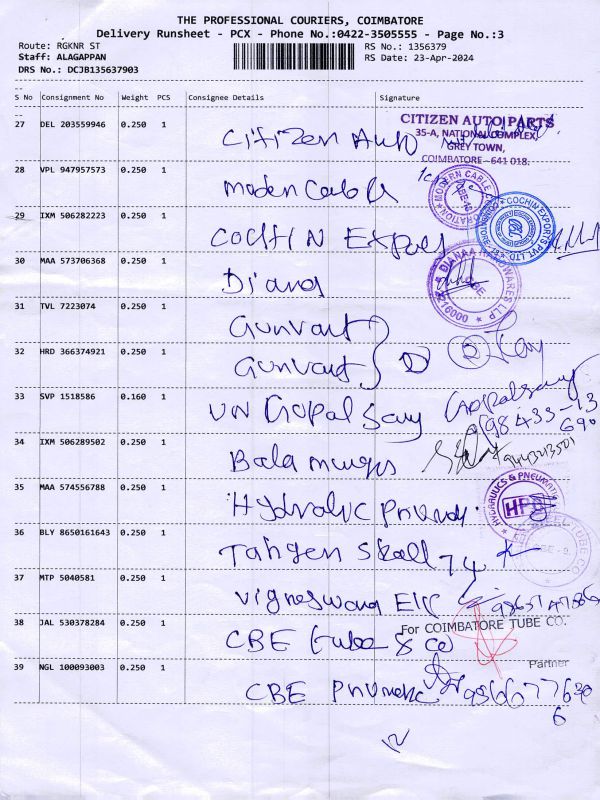 THE PROFESSIONAL COURIERS, COIMBATORE
Delivery Runsheet - PCX - Phone No.:0422-3505555 - Page No.:3
Route: RGKNR ST
RS No.: 1356379
Staff: ALAGAPPAN
RS Date: 23-Apr-2024
DRS No.: DCJB135637903
S No Consignment No Weight PCS Consignee Details Signature
27 DEL 203559946 0.250 1 Citizen Auto
CITIZEN AUTO PARTS
35-A, NATIONAL COMPLEX,
GREY TOWN,
COIMBATORE - 641 018.
28 VPL 947957573 0.250 1 Moden Cable
MODERN CABLE
29 IXM 506282223 0.250 1 COCHIN
COCHIN EXPORTS PVT. LTD.
30 MAA 573706368 0.250 1 Diana
DIANAA HARDWARES LLP
31 TVL 7223074 0.250 1 Gunvant
32 HRD 366374921 0.250 1 Gunvant
33 SVP 1518586 0.160 1 VN Gopalsamy Gopalsamy
98433-13
690
34 IXM 506289502 0.250 1 Bala
35 MAA 574556788 0.250 1 Hydralic
HYDRAULICS & PNEUMATICS
HPC
36 BLY 8650161643 0.250 1 74
STEEL TUBE CO
37 MTP 5040581 0.250 1
For COIMBATORE TUBE CO.
38 JAL 530378284 0.250 1 CBE tube & co
Partner
39 NGL 100093003 0.250 1 CBE